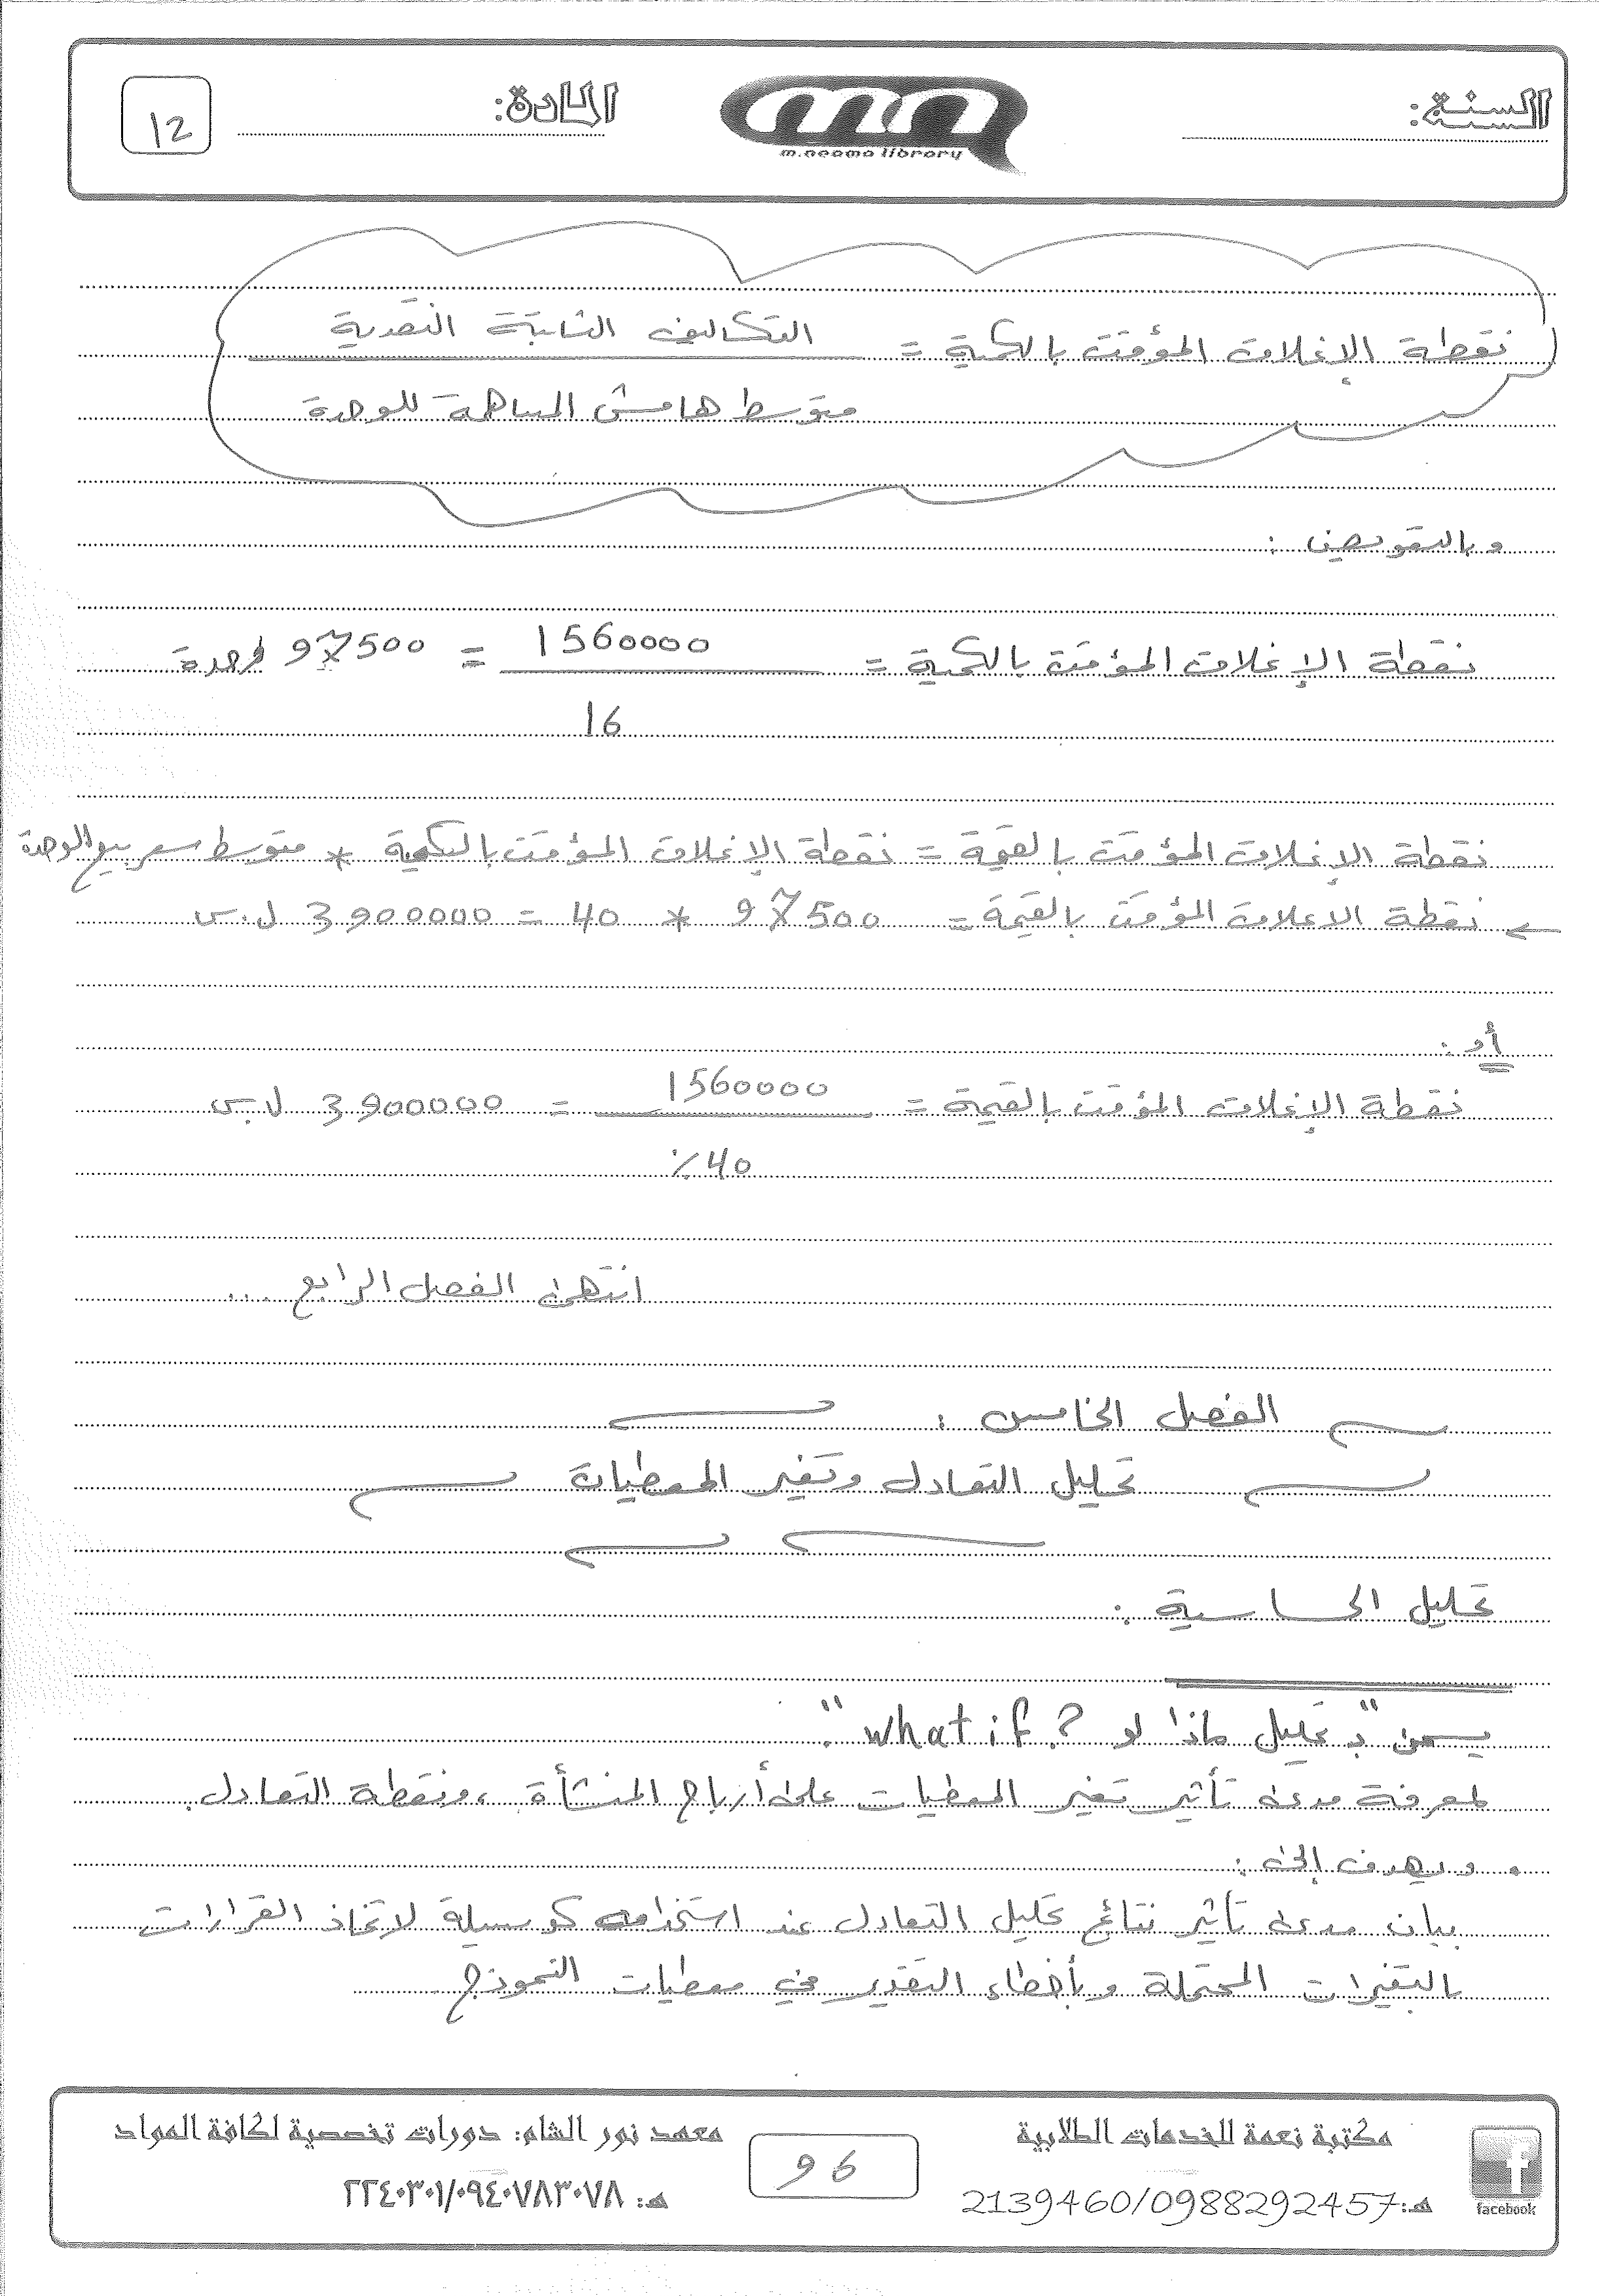 السنة:
m.neama library
المادة:
12
نقطة الإغلاق المؤقت بالكمية = التكاليف الثابتة النقدية
متوسط هامش المساهمة للوحدة
وبالتعويض:
نقطة الإغلاق المؤقت بالكمية = 1560000 = 97500 وحدة
16
نقطة الإغلاق المؤقت بالقيمة = نقطة الإغلاق المؤقت بالكمية * متوسط سعر بيع الوحدة
← نقطة الاغلاق المؤقت بالقيمة = 97500 * 40 = 3900000 ل.س
أو:
نقطة الإغلاق المؤقت بالقيمة = 1560000 = 3900000 ل.س
%40
انتهى الفصل الرابع ...
الفصل الخامس:
تحليل التعادل وتغير المعطيات
تحليل الحساسية:
يسمى "بـ تحليل ماذا لو what if?".
لمعرفة مدى تأثير تغير المعطيات على أرباح المنشأة، ونقطة التعادل.
• ويهدف إلى:
بيان مدى تأثير نتائج تحليل التعادل عند استخدامه كوسيلة لاتخاذ القرارات
بالتغيرات المحتملة وبأخطاء التقدير في معطيات النموذج
facebook
مكتبة نعمة للخدمات الطلابية
هـ: 2139460/0988292457
96
معهد نور الشام: دورات تخصصية لكافة المواد
هـ: ٢٢٤٠٣٠١/٠٩٤٠٧٨٣٠٧٨